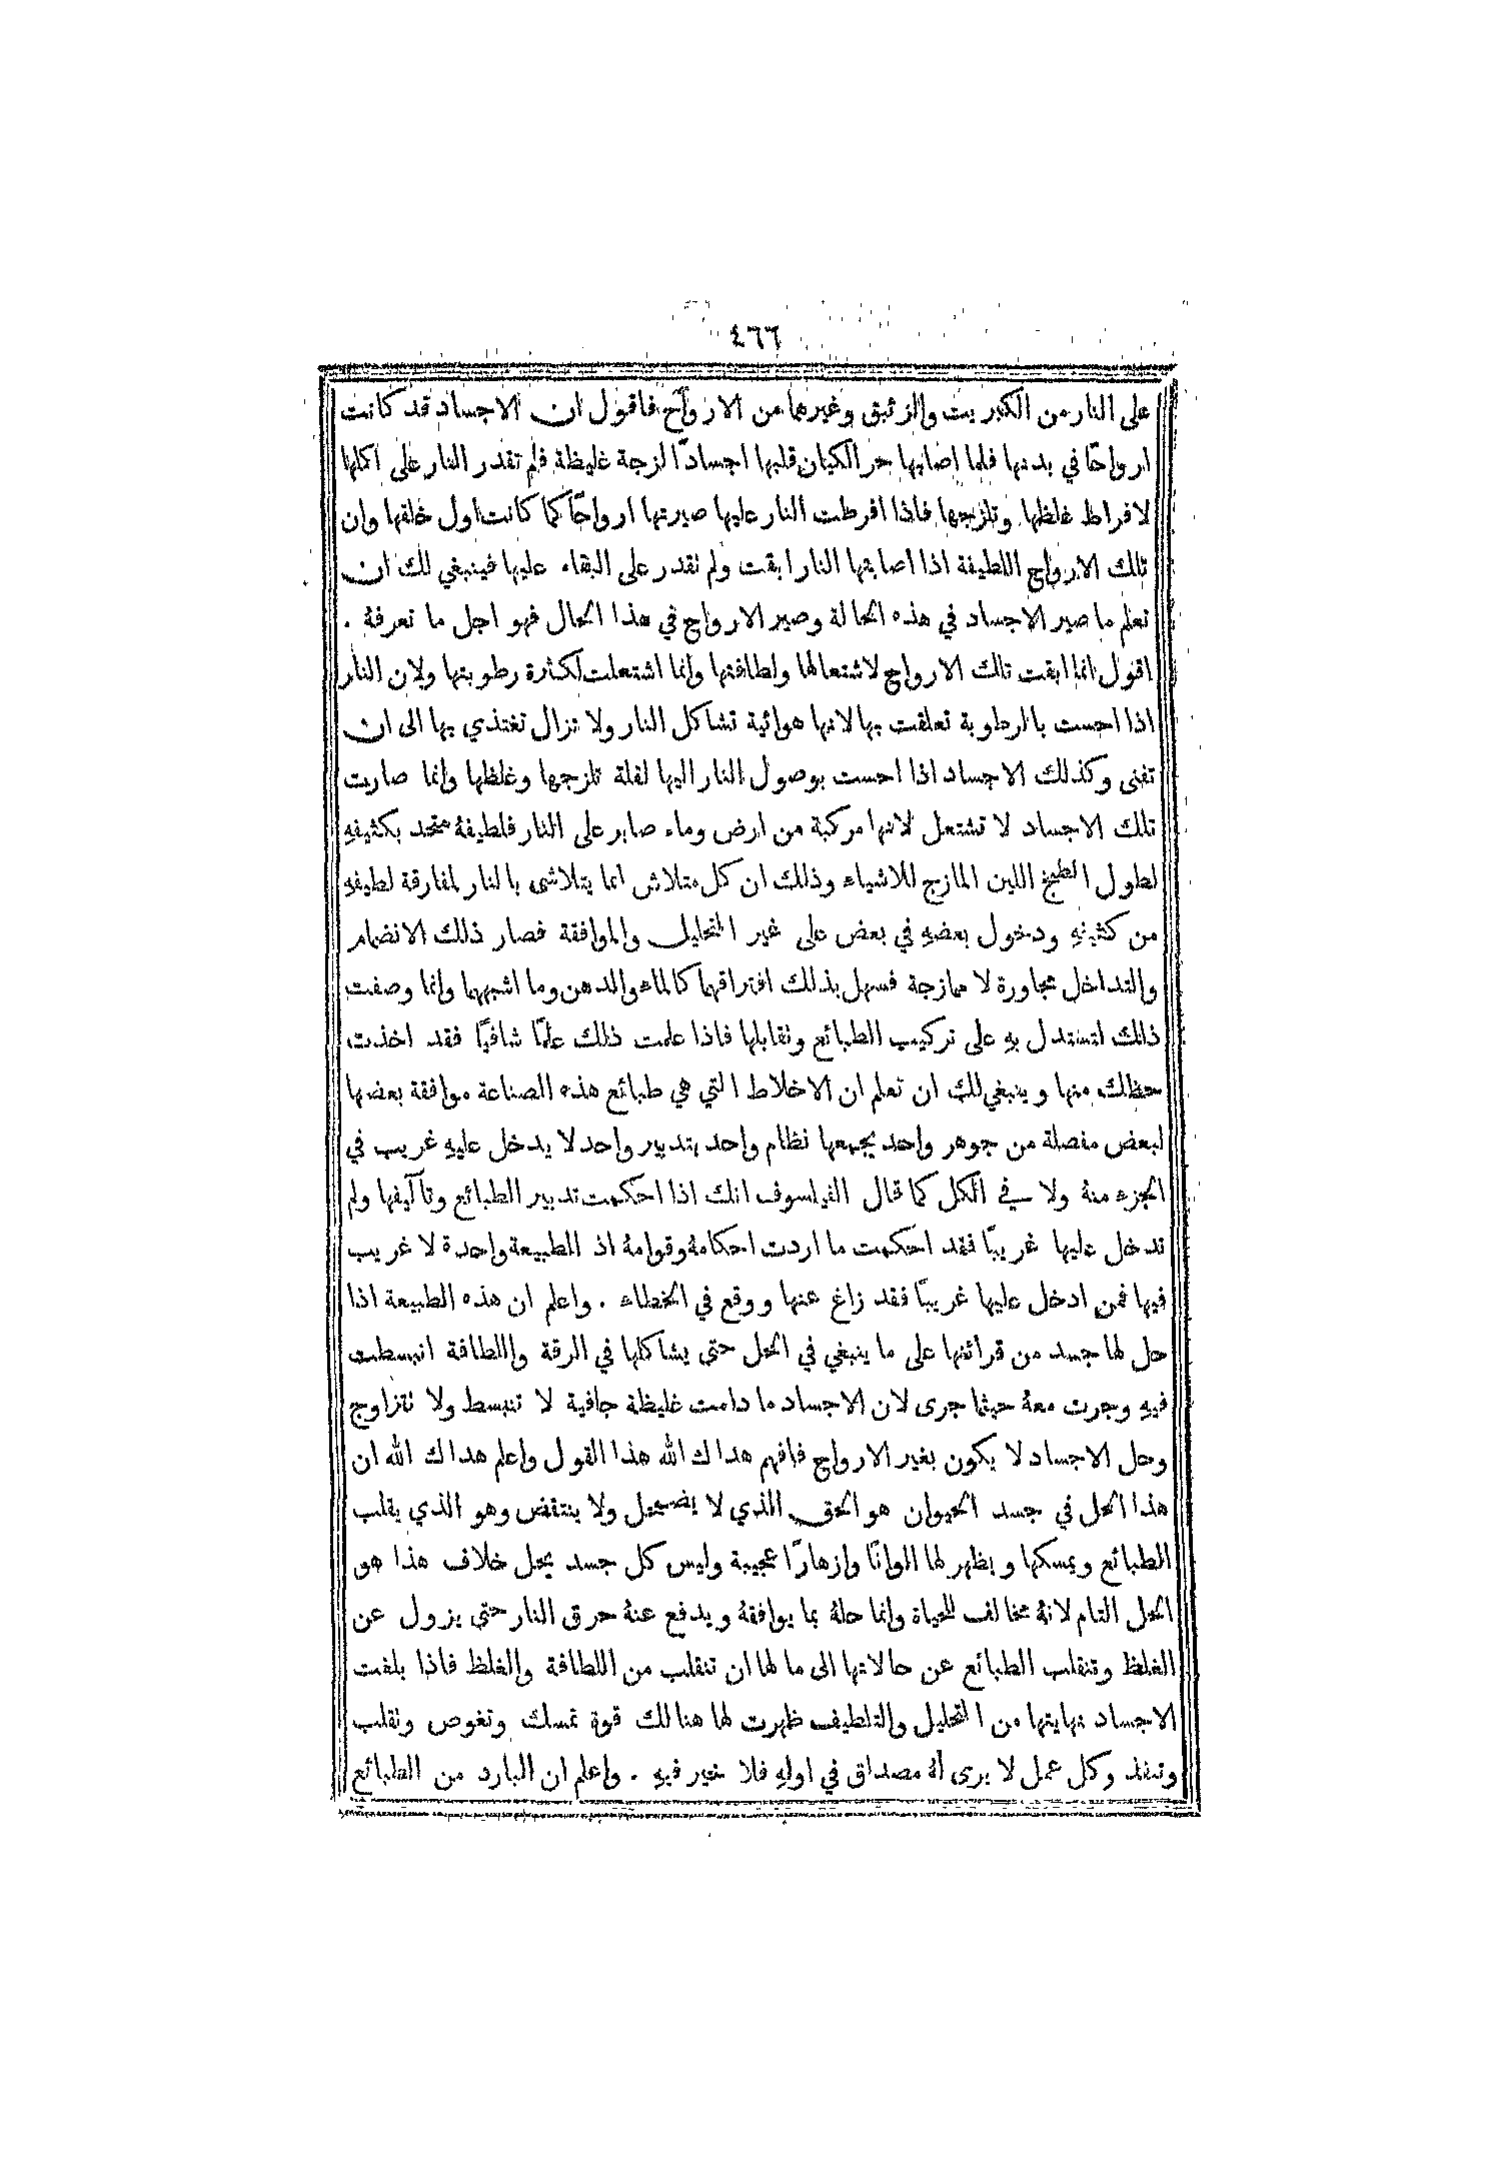 ٤٦٦
على النار من الكبريت والزئبق وغيرهما من الارواح فاقول ان الاجساد قد كانت
ارواحًا في بدنها فلما اصابها حر الكيان قلبها اجسادًا لزجة غليظة فلم تقدر النار على اكلها
لافراط غلظها وتلزجها فاذا افرطت النار عليها صيرتها ارواحًا كما كانت اول خلقها وان
تلك الارواح اللطيفة اذا اصابتها النار ابقت ولم تقدر على البقاء عليها فينبغي لك ان
تعلم ما صير الاجساد في هذه الحالة وصير الارواح في هذا الحال فهو اجل ما تعرفهُ .
اقول انما ابقت تلك الارواح لاشتعالها ولطافتها وانما اشتعلت لكثرة رطوبتها ولان النار
اذا احست بالرطوبة تعلقت بها لانها هوائية تشاكل النار ولا تزال تغتذي بها الى ان
تفنى وكذلك الاجساد اذا احست بوصول النار اليها لقلة تلزجها وغلظها وانما صارت
تلك الاجساد لا تشتعل لانها مركبة من ارض وماء صابر على النار فلطيفهُ متحد بكثيفهِ
لطول الطبخ اللين المازج للاشياء وذلك ان كل متلاش انما يتلاشى بالنار لمفارقة لطيفهِ
من كثيفهِ ودخول بعضهِ في بعض على غير التحليل والموافقة فصار ذلك الانضمام
والتداخل مجاورة لا ممازجة فسهل بذلك افتراقهما كالماء والدهن وما اشبههما وانما وصفت
ذلك لتستدل بهِ على تركيب الطبائع وتقابلها فاذا علمت ذلك علمًا شافيًا فقد اخذت
حظك منها وينبغي لك ان تعلم ان الاخلاط التي هي طبائع هذه الصناعة موافقة بعضها
لبعض مفصلة من جوهر واحد يجمعها نظام واحد بتدبير واحد لا يدخل عليهِ غريب في
الجزء منهُ ولا في الكل كما قال الفيلسوف انك اذا احكمت تدبير الطبائع وتآليفها ولم
تدخل عليها غريبًا فقد احكمت ما اردت احكامهُ وقوامهُ اذ الطبيعة واحدة لا غريب
فيها فمن ادخل عليها غريبًا فقد زاغ عنها ووقع في الخطاء . واعلم ان هذه الطبيعة اذا
حل لها جسد من قرائنها على ما ينبغي في الحل حتى يشاكلها في الرقة واللطافة انبسطت
فيهِ وجرت معهُ حيثما جرى لان الاجساد ما دامت غليظة جافية لا تنبسط ولا تتزاوج
وحل الاجساد لا يكون بغير الارواح فافهم هداك الله هذا القول واعلم هداك الله ان
هذا الحل في جسد الحيوان هو الحق الذي لا يضمحل ولا ينتقض وهو الذي يقلب
الطبائع ويمسكها ويظهر لها الوانًا وازهارًا عجيبة وليس كل جسد يحل خلاف هذا هو
الحل التام لانهُ مخالف للحياة وانما حلهُ بما يوافقهُ ويدفع عنهُ حرق النار حتى يزول عن
الغلظ وتنقلب الطبائع عن حالاتها الى ما لها ان تنقلب من اللطافة والغلظ فاذا بلغت
الاجساد نهايتها من التحليل والتلطيف ظهرت لها هنالك قوة تمسك وتغوص وتقلب
وتنفذ وكل عمل لا يرى لهُ مصداق في اولهِ فلا خير فيهِ . واعلم ان البارد من الطبائع